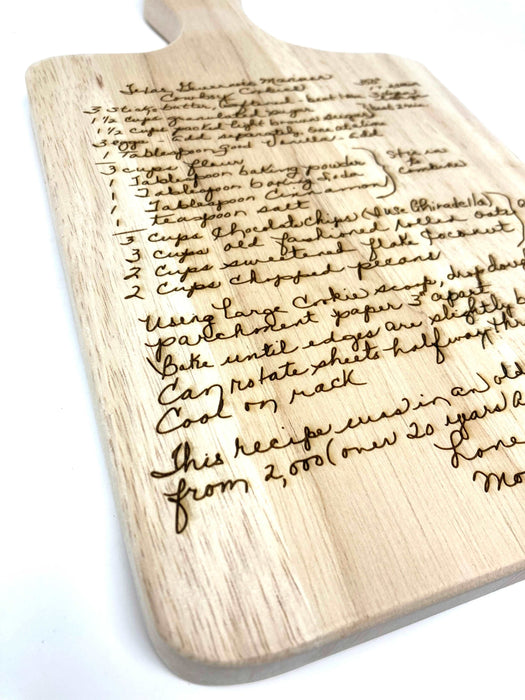 Texas Governor's Mansion 350°
Cowboy Cookies
3 sticks butter,
1 1/2 cups granulated sugar
1 1/2 cups packed light brown sugar
3 eggs - add separately, one at a time
1 Tablespoon good Vanilla - add
3 cups flour
1 Tablespoon baking powder
1 Tablespoon baking soda
1 Tablespoon Cinnamon
1 teaspoon salt
Stir in to Combine
3 cups Chocolate Chips (I use Ghiradella)
3 cups old fashioned rolled oats
2 cups sweetened flake Coconut
2 cups chopped pecans
Using Large Cookie scoop, drop dough
parchment paper 3" apart
Bake until edges are slightly
Can rotate sheets halfway
Cool on rack
This recipe was in an old
from 2,000 (over 20 years
Love